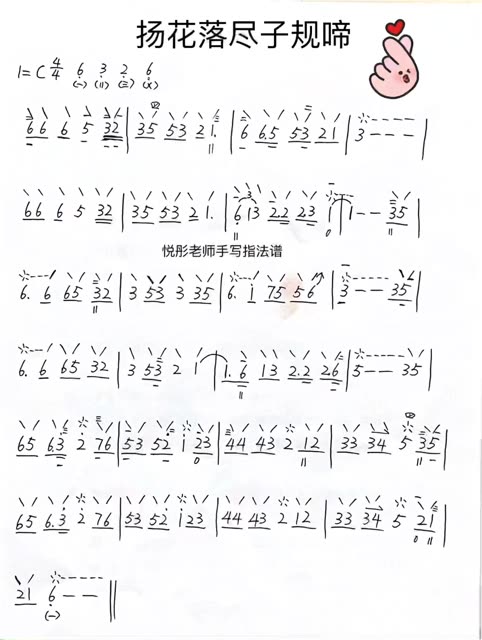 扬花落尽子规啼
1=C 4/4 6 3 2 6
(一) (II) (三) (X)
66 6 5 32 | 35 53 21. | 6 6.5 53 21 | 3 - - - |
66 6 5 32 | 35 53 21. | 613 2.2 23 1 | 1 - - 35 |
悦彤老师手写指法谱
6. 6 65 32 | 3 53 3 35 | 6. i 75 56 | 3 - - - 35 |
6. 6 65 32 | 3 53 2 1 | 1.6 13 2.2 26 | 5 - - 35 |
65 6.3 2 76 | 53 52 i 23 | 44 43 2 12 | 33 34 5 35 |
65 6.3 2 76 | 53 52 i 23 | 44 43 2 12 | 33 34 5 21 |
21 6 - - ||
(一)